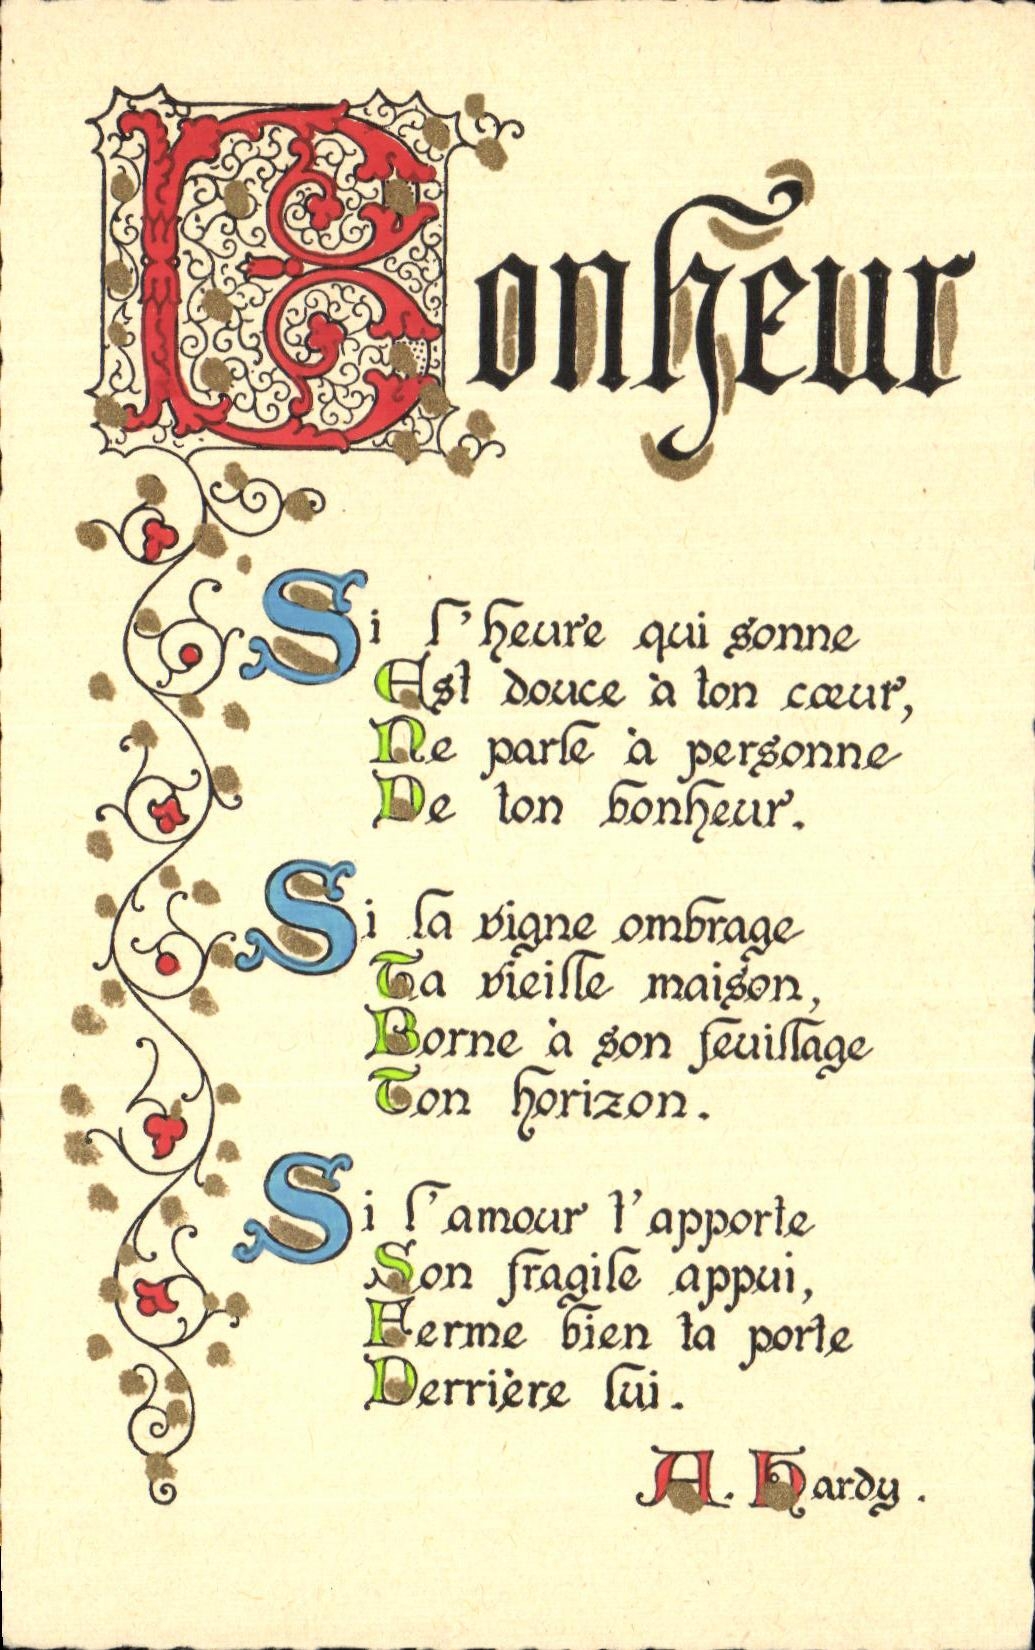 Bonheur
Si l'heure qui sonne
Est douce à ton cœur,
Ne parle à personne
De ton bonheur.
Si la vigne ombrage
Ta vieille maison,
Borne à son feuillage
Ton horizon.
Si l'amour t'apporte
Son fragile appui,
Ferme bien ta porte
Derrière lui.
A. Hardy.